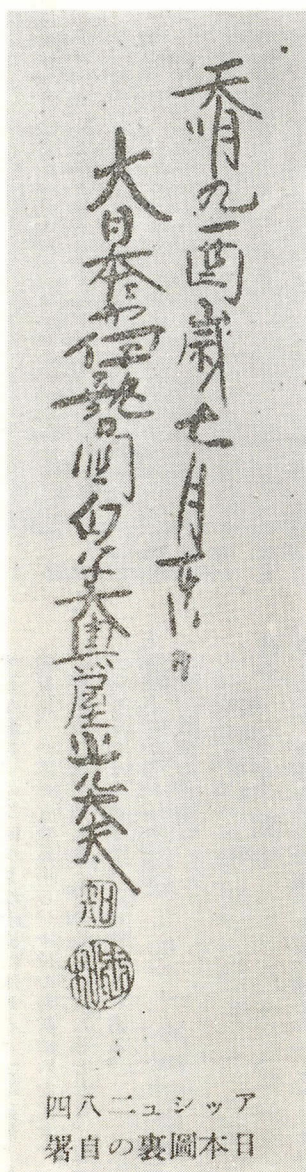 天明九酉歳七月日
大日本伊勢國白子大黒屋光太夫
アッシュ二八四
日本圖裏の自署